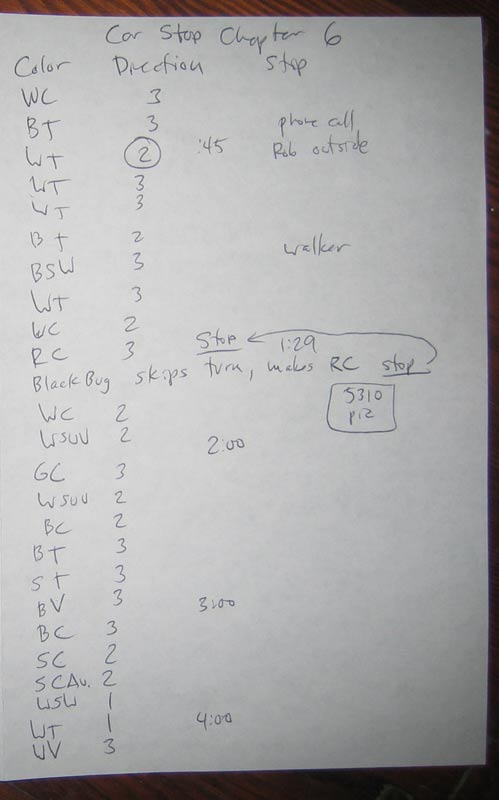 Car Stop Chapter 6
Color Direction Stop
WC 3
BT 3 phone call
WT 2 :45 Rob outside
WT 3
WT 3
BT 2 walker
BSW 3
WT 3
WC 2
RC 3 Stop 1:29
Black Bug skips turn, makes RC stop
WC 2 5310 pic
WSUV 2 2:00
GC 3
WSUV 2
BC 2
BT 3
ST 3
BV 3 3:00
BC 3
SC 2
SCAv. 2
WSW 1
WT 1 4:00
WV 3